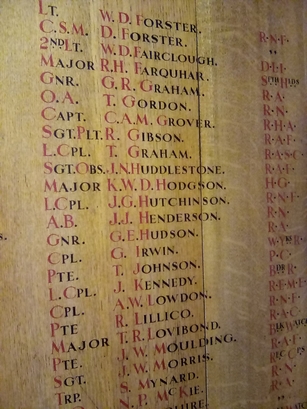 LT. W.D. FORSTER.
C.S.M. D. FORSTER. R.N.F.
2ND LT. W.D. FAIRCLOUGH. "
MAJOR R.H. FARQUHAR. D.L.I.
GNR. G.R. GRAHAM.
O.A. T. GORDON. R.N.
CAPT. C.A.M. GROVER. R.H.A.
SGT.PLT. R. GIBSON. R.A.F.
L.CPL. T. GRAHAM. R.A.S.C.
SGT.OBS. J.N. HUDDLESTONE. R.A.F.
MAJOR K.W.D. HODGSON. H.G.
L.CPL. J.G. HUTCHINSON. R.A.
A.B. J.J. HENDERSON. R.N.
GNR. G.E. HUDSON. R.A.
CPL. G. IRWIN.
PTE. T. JOHNSON. P.C.
L.CPL. J. KENNEDY.
CPL. A.W. LOWDON. R.E.M.E.
PTE R. LILLICO.
MAJOR T.R. LOVIBOND. R.A.
PTE. J.W. MOULDING.
SGT. J.W. MORRIS. R.A.F.
TRP. S. MYNARD.
N.P. MCKIE. R.N.